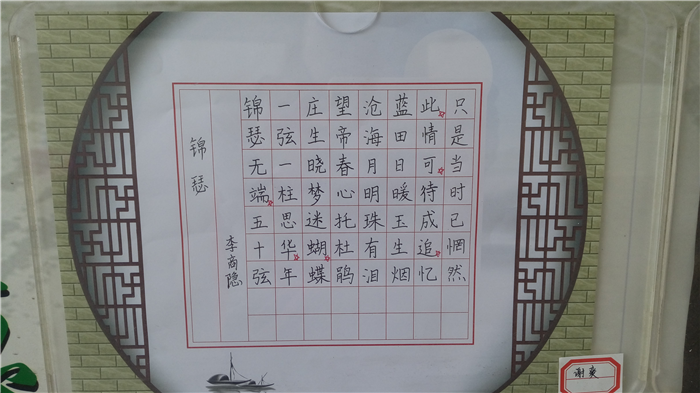 锦瑟
李商隐
锦瑟无端五十弦
一弦一柱思华年
庄生晓梦迷蝴蝶
望帝春心托杜鹃
沧海月明珠有泪
蓝田日暖玉生烟
此情可待成追忆
只是当时已惘然
谢爽